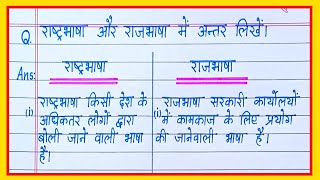 Q. राष्ट्रभाषा और राजभाषा में अन्तर लिखें।
Ans:
राष्ट्रभाषा
(i) राष्ट्रभाषा किसी देश के
अधिकतर लोगों द्वारा
बोली जाने वाली भाषा
है।
राजभाषा
(i) राजभाषा सरकारी कार्यालयों
में कामकाज के लिए प्रयोग
की जानेवाली भाषा है।